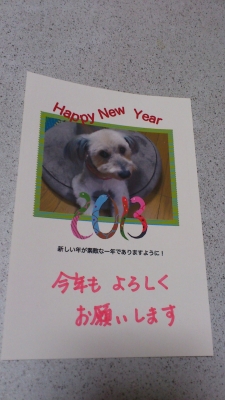 Happy New Year
2013
新しい年が素敵な一年でありますように！
今年も よろしく
お願いします